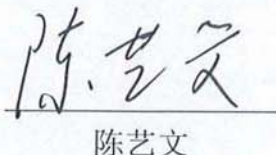 陈艺文
陈艺文